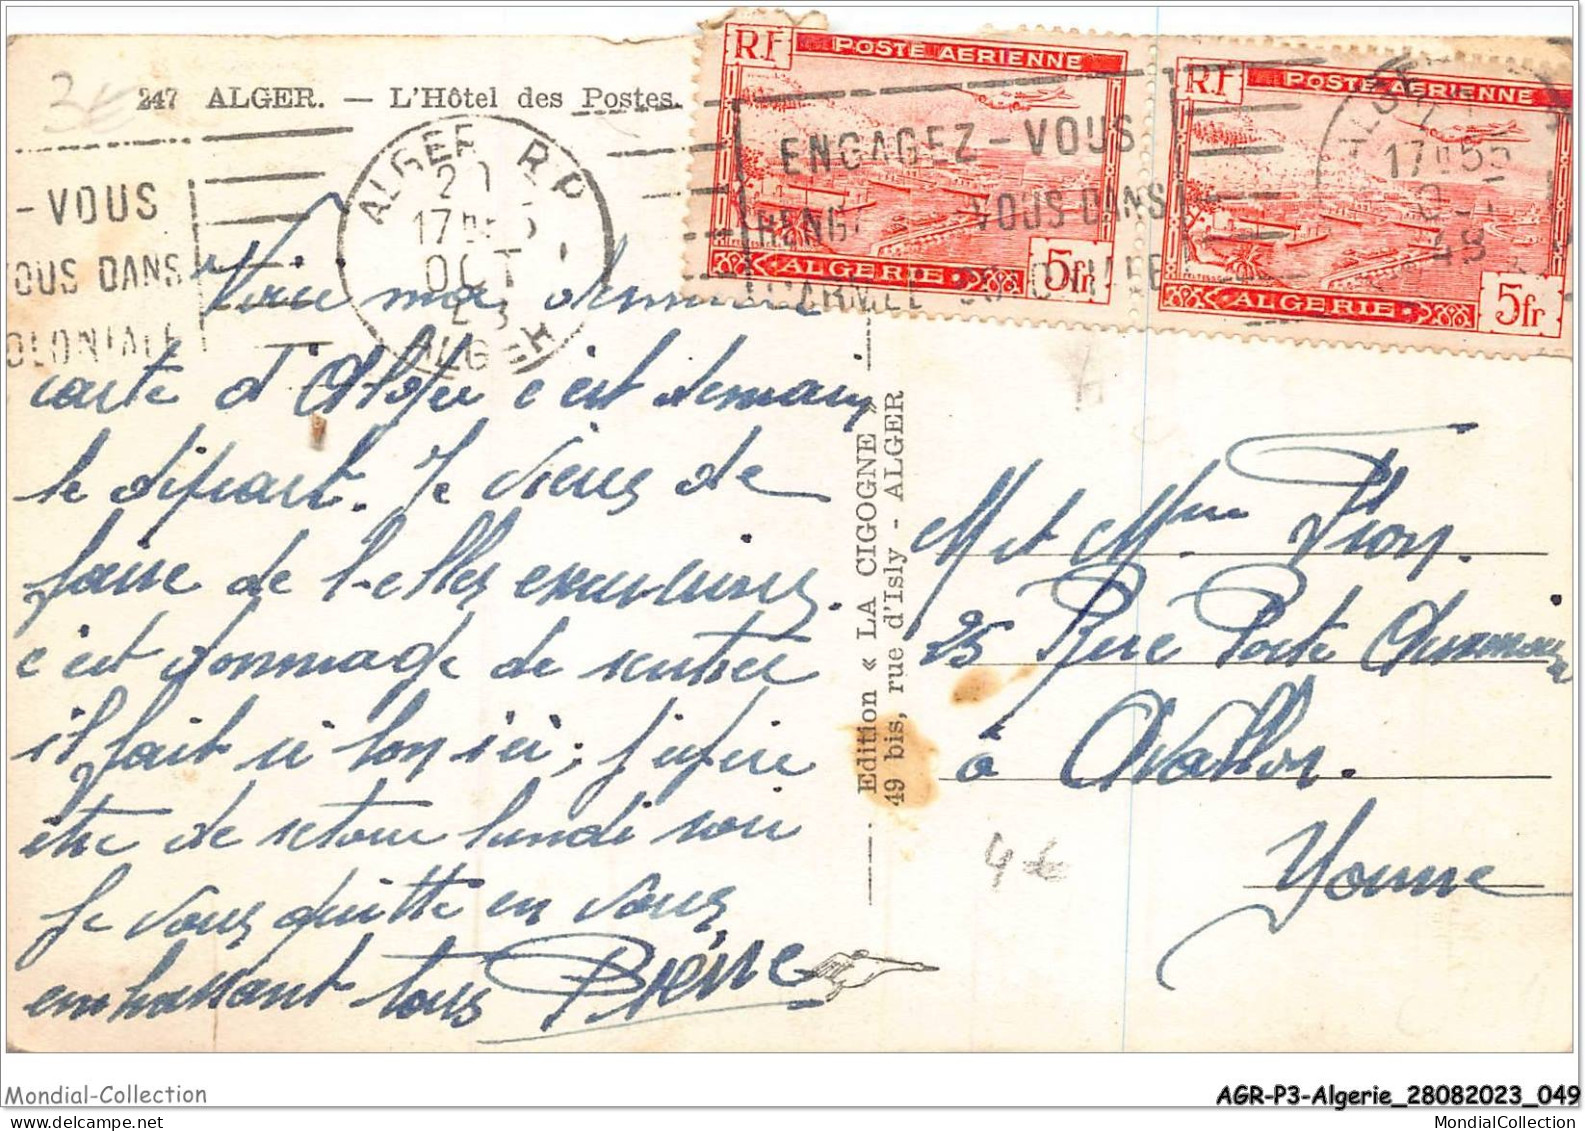 247 ALGER. — L'Hôtel des Postes.
3€
RF POSTE AERIENNE
ALGERIE 5fr
RF POSTE AERIENNE
ALGERIE 5fr
ENGAGEZ-VOUS
VOUS DANS
ALGER R.P
17H55
OCT
ALGER
17H55
48
-VOUS
OUS DANS
OLONIALE
Voici ma dernière
carte d'Alger c'est demain
le départ. Je viens de
faire de belles excursions.
c'est dommage de rentrer
il fait si bon ici; j'espère
être de retour lundi soir
Je vous quitte en vous
embrassant tous Pierre
Edition « LA CIGOGNE »
49 bis, rue d'Isly - ALGER
M et Mme Pion.
25 Rue Porte Auxerroise
à Avallon.
Yonne
4€
Mondial-Collection
AGR-P3-Algerie_28082023_049
MondialCollection